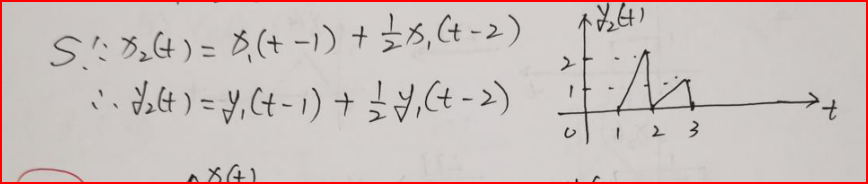 S: ∵ x₂(t) = x₁(t-1) + ½x₁(t-2)
∴ y₂(t) = y₁(t-1) + ½y₁(t-2)
y₂(t)
2
1
0 1 2 3 t
x(t)